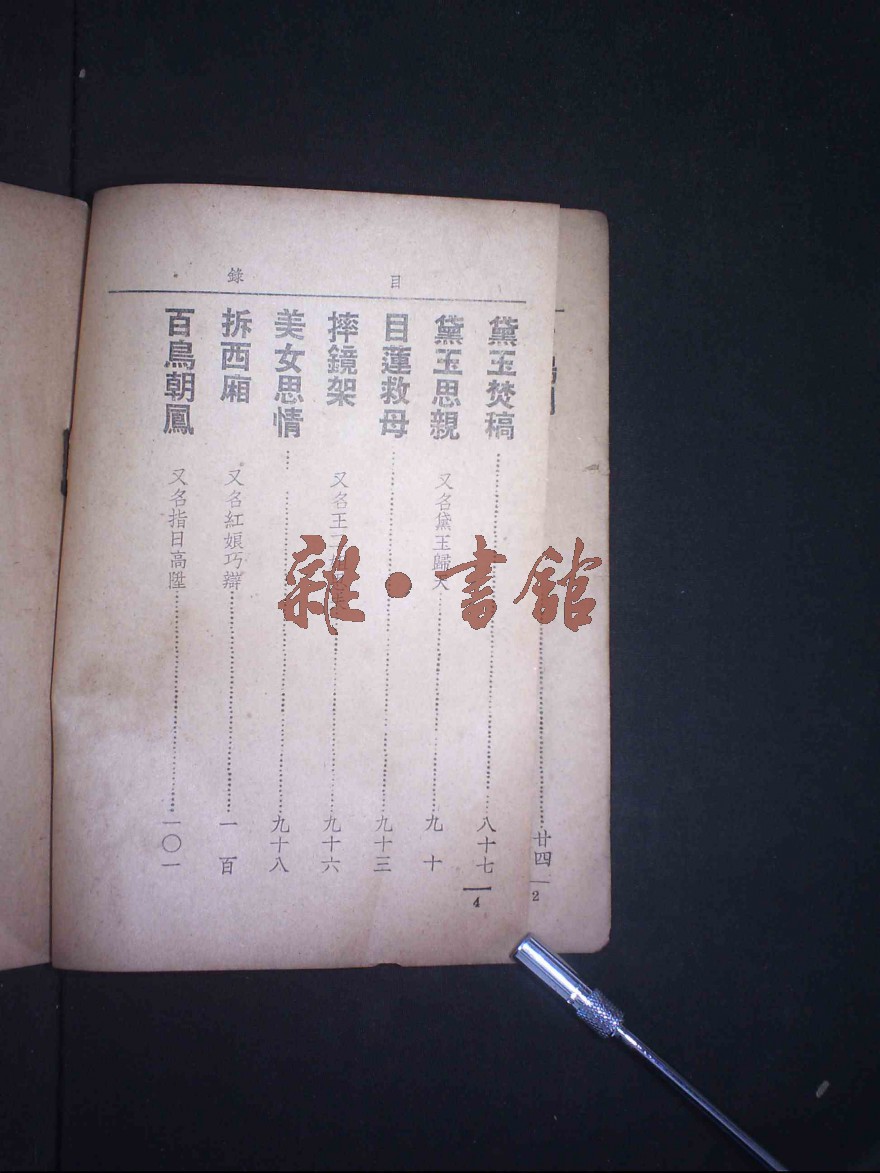 目錄
黛玉焚稿……八十七
黛玉思親 又名黛玉歸天……九十
目蓮救母……九十三
摔鏡架 又名王二姐……九十六
美女思情……九十八
拆西廂 又名紅娘巧辯……一百
百鳥朝鳳 又名指日高陞……一〇一
4
廿四
2
雜·書館